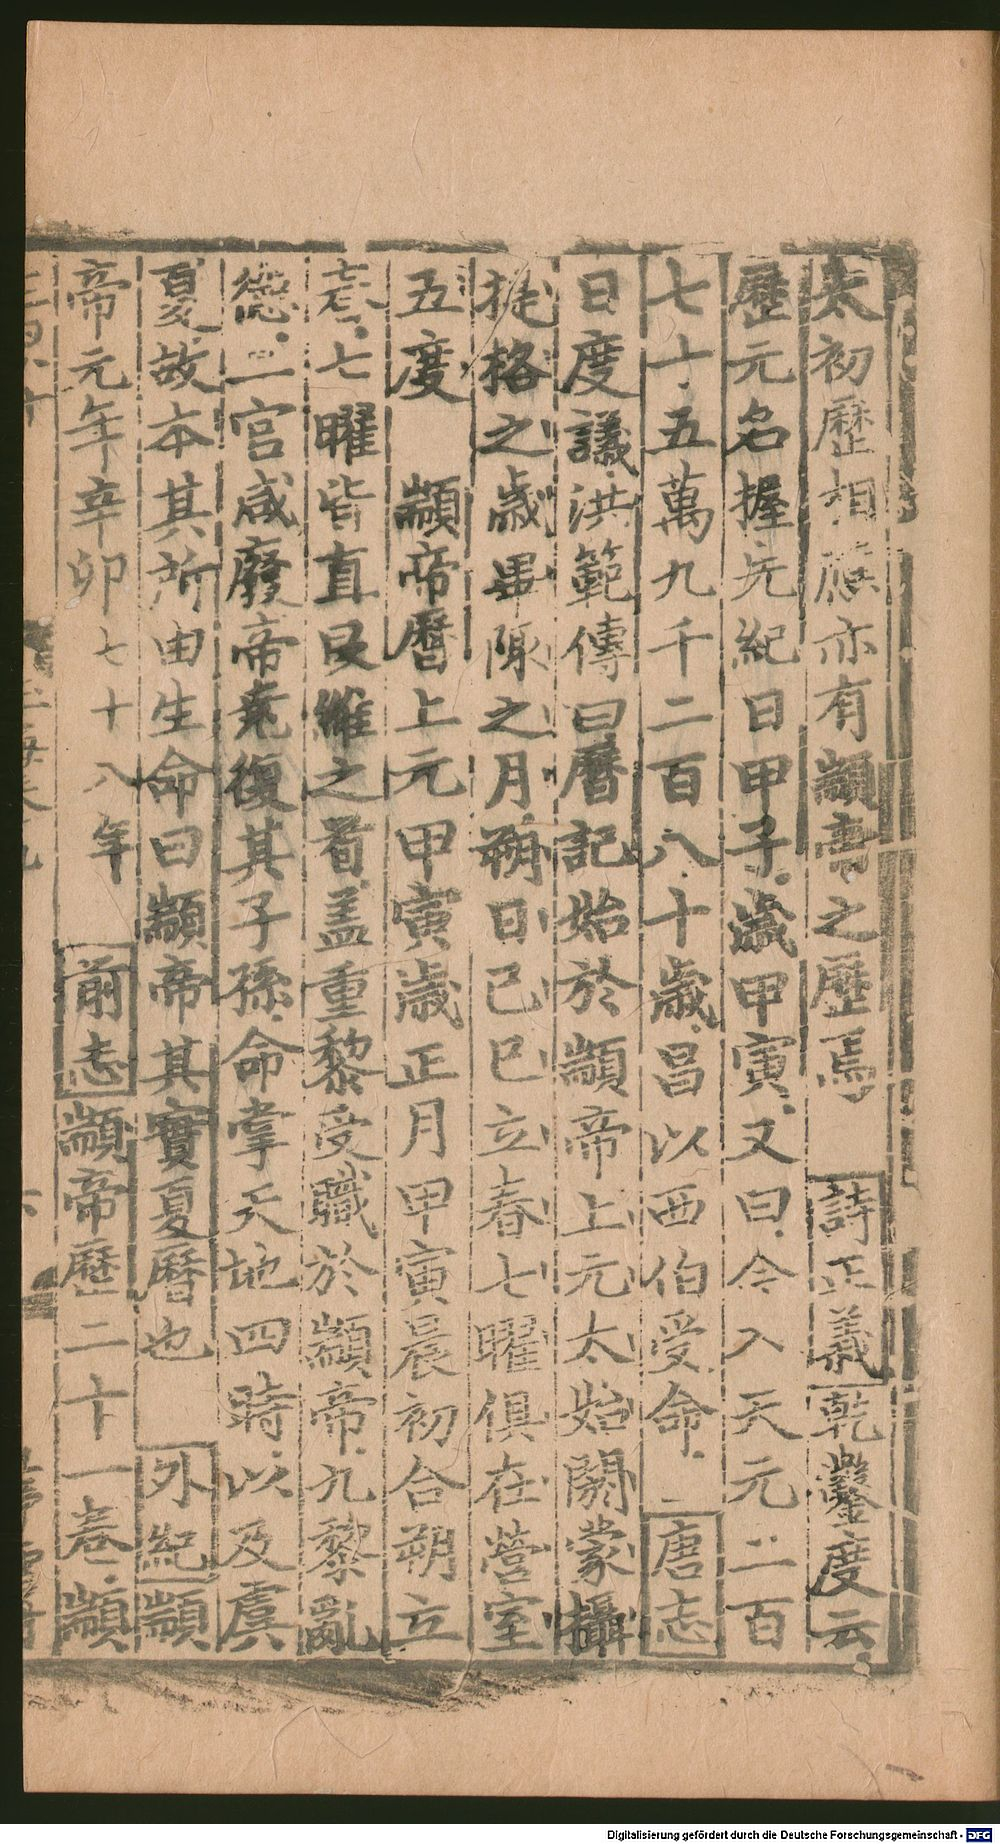 太初歷相應亦有顓帝之歷焉 詩正義乾鑿度云
歷元名握先紀日甲子歲甲寅又曰今入天元二百
七十五萬九千二百八十歲昌以西伯受命 唐志
日度議洪範傳曰曆記始於顓帝上元太始閼蒙攝
提格之歲畢陬之月朔日己巳立春七曜俱在營室
五度 顓帝曆上元甲寅歲正月甲寅晨初合朔立
春七曜皆直艮維之首盖重黎受職於顓帝九黎亂
德二官咸廢帝堯復其子孫命掌天地四時以及虞
夏故本其所由生命曰顓帝其實夏曆也 外紀顓
帝元年辛卯七十八年 前志顓帝歷二十一卷顓
Digitalisierung gefördert durch die Deutsche Forschungsgemeinschaft - DFG